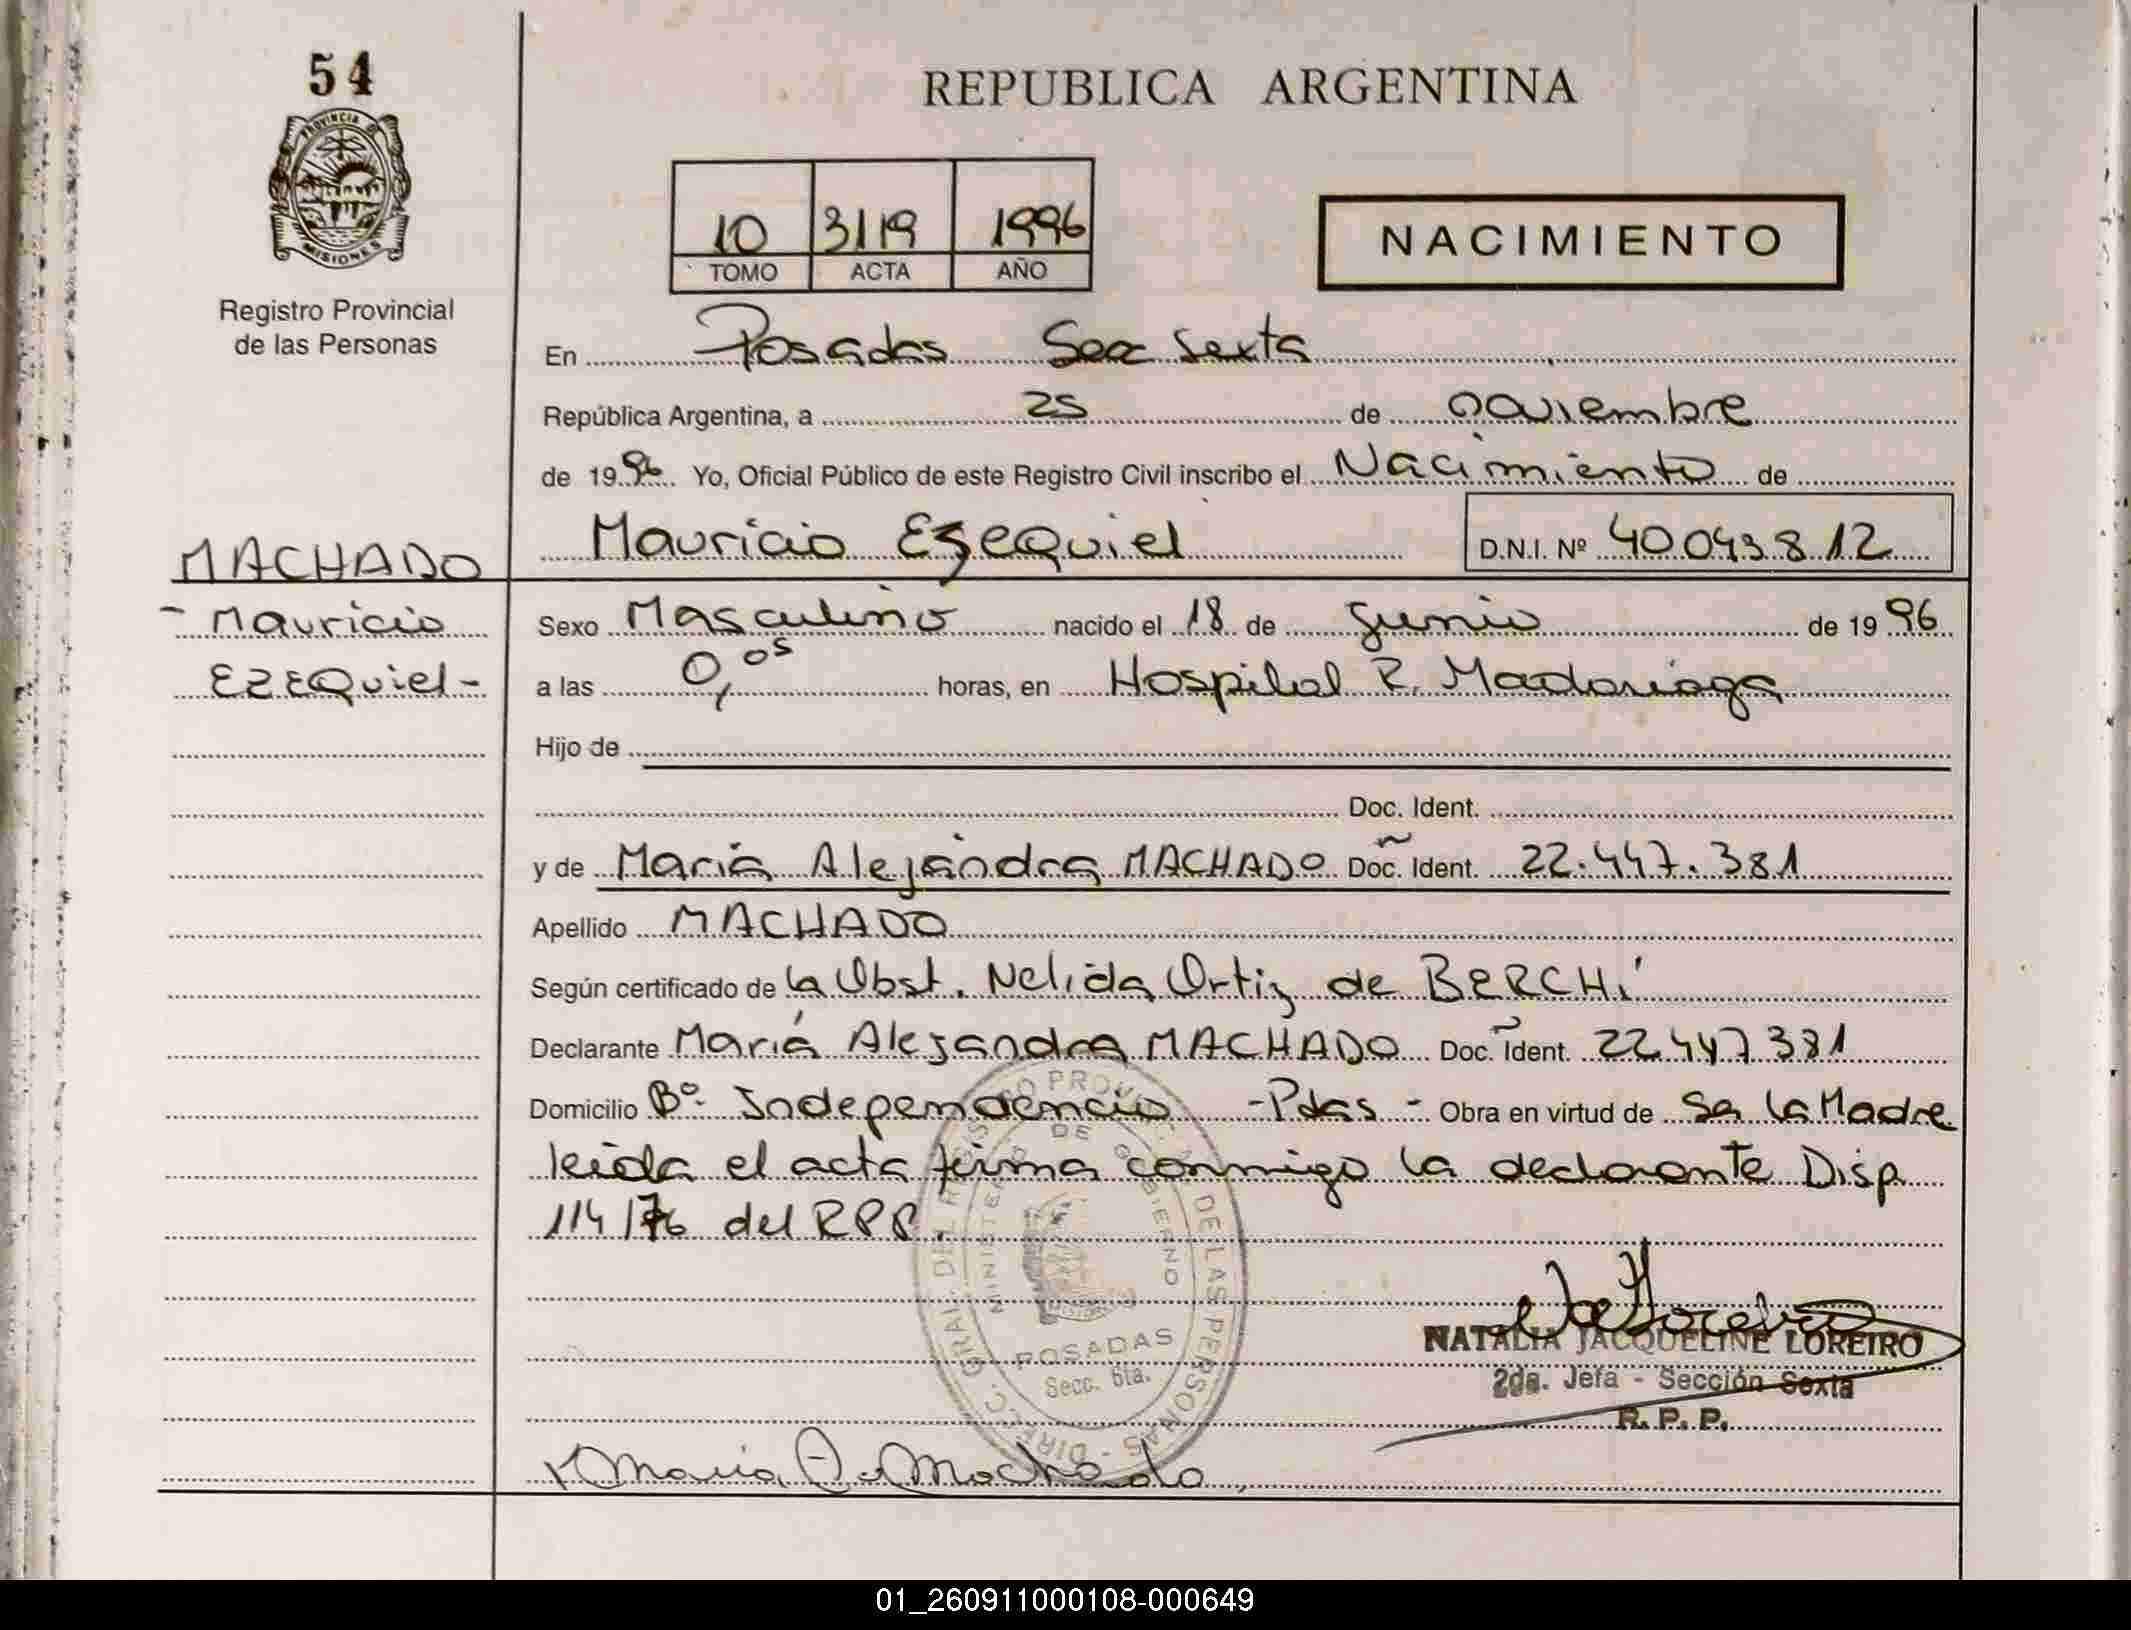 54
PROVINCIA DE
MISIONES
Registro Provincial
de las Personas
REPUBLICA ARGENTINA
10 3119 1996
TOMO ACTA AÑO
NACIMIENTO
En Posadas Sec Sexta
República Argentina, a 25 de noviembre
de 1996 Yo, Oficial Público de este Registro Civil inscribo el Nacimiento de
Mauricio Ezequiel D.N.I. Nº 40043812
MACHADO
- Mauricio
EZEQuiel -
Sexo Masculino nacido el 18 de Junio de 1996
a las 0,05 horas, en Hospital R. Madariaga
Hijo de
Doc. Ident.
y de María Alejandra MACHADO Doc. Ident. 22.447.381
Apellido MACHADO
Según certificado de la Obst. Nelida Ortiz de BERCHI
Declarante María Alejandra MACHADO Doc. Ident. 22447381
Domicilio Bº Independencia - Pdas - Obra en virtud de Ser la Madre
leida el acta firma conmigo la declarante Disp
114/76 del RPP.
DIRECC. GRAL. DEL REGISTRO PROV. DE LAS PERSONAS
MINISTERIO DE GOBIERNO
POSADAS
Secc. 6ta.
NATALIA JACQUELINE LOREIRO
2da. Jefa - Sección Sexta
R. P. P.
Maria A. Machado
01_260911000108-000649